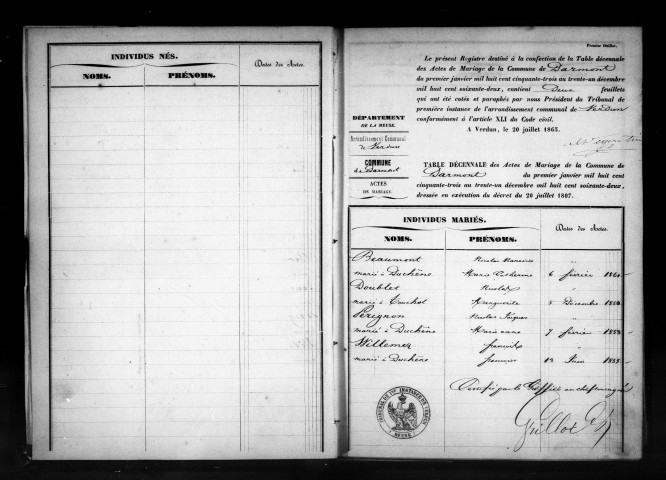 INDIVIDUS NÉS.
NOMS. PRÉNOMS. Dates des Actes.
Premier feuillet.
Le présent Registre destiné à la confection de la Table décennale
des Actes de Mariage de la Commune de Darmont
du premier janvier mil huit cent cinquante-trois au trente-un décembre
mil huit cent soixante-deux, contient Deux feuillets
qui ont été cotés et paraphés par nous Président du Tribunal de
première instance de l'arrondissement communal de Verdun
conformément à l'article XLI du Code civil.
A Verdun, le 20 juillet 1863.
DÉPARTEMENT
DE LA MEUSE.
Arrondissement Communal
de Verdun
COMMUNE
de Darmont
ACTES
DE MARIAGE
TABLE DÉCENNALE des Actes de Mariage de la Commune de
Darmont du premier janvier mil huit cent
cinquante-trois au trente-un décembre mil huit cent soixante-deux,
dressée en exécution du décret du 20 juillet 1807.
INDIVIDUS MARIÉS.
NOMS. PRÉNOMS. Dates des Actes.
Beaumont Nicolas "
marié à Duchêne Marie Catherine 6 février
Doublet Nicolas "
marié à Marguerite Décembre
Pérignon Nicolas "
marié à Duchêne Marie anne 7 février
Willemer françois "
marié à Duchêne Juin
Guillot
MEUSE